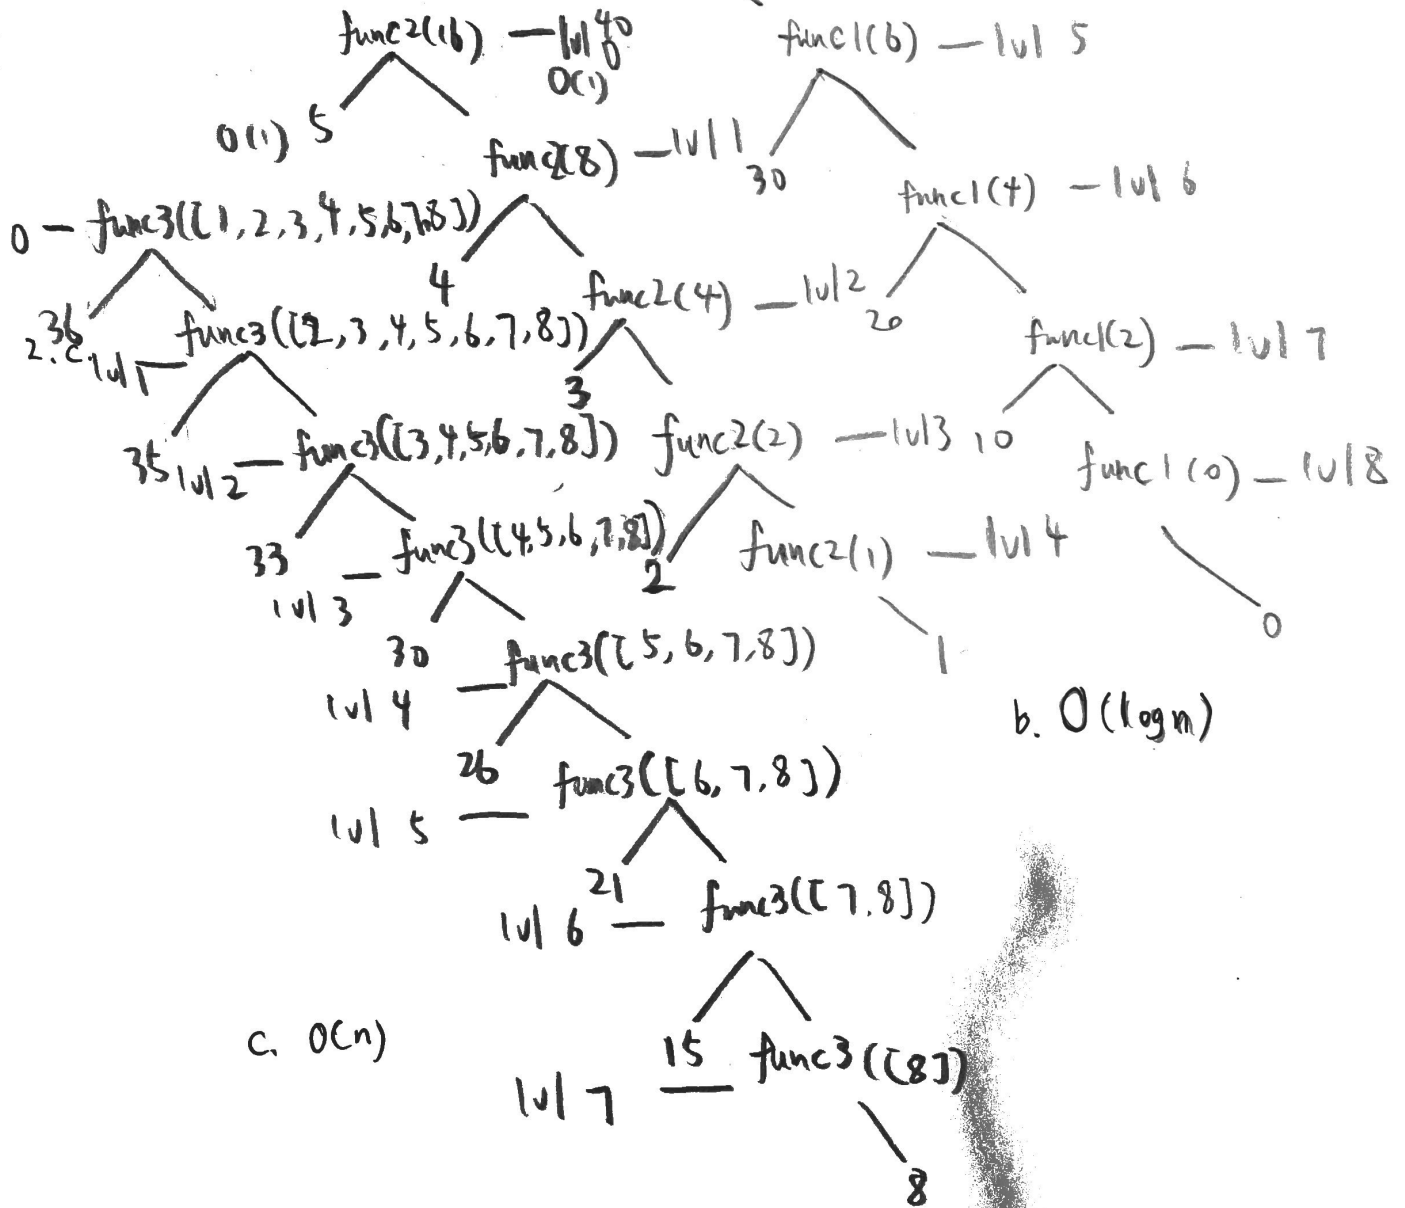 func2(16) — lvl 0
O(1)
O(1) 5
func2(8) — lvl 1
4
func2(4) — lvl 2
3
func2(2) — lvl 3
2
func2(1) — lvl 4
1
func1(6) — lvl 5
30
func1(4) — lvl 6
20
func1(2) — lvl 7
10
func1(0) — lvl 8
0
b. O(logn)
0 — func3([1,2,3,4,5,6,7,8])
36
2. c.
lvl 1 — func3([2,3,4,5,6,7,8])
35
lvl 2 — func3([3,4,5,6,7,8])
33
lvl 3 — func3([4,5,6,7,8])
30
lvl 4 — func3([5,6,7,8])
26
lvl 5 — func3([6,7,8])
21
lvl 6 — func3([7,8])
15
lvl 7 — func3([8])
8
c. O(n)